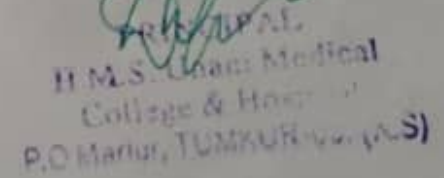 PRINCIPAL
H.M.S. Unani Medical
College &
P.O Marlur, TUMKUR